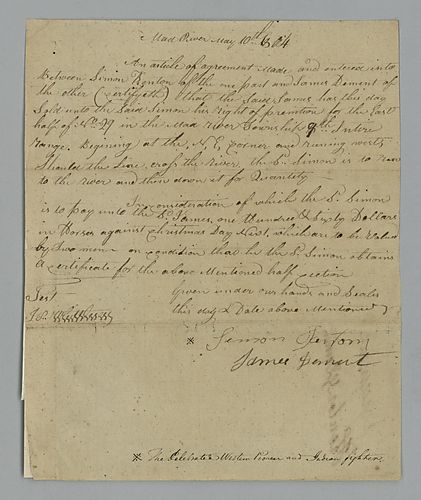 Mad River May 10th 1804
An article of agreement Made and entered into
Between Simon Kenton of the one part and James Demint of
the other (certifyeth) that the Said James has this day
Sold unto the Said Simon his Right of premtion for the East
half of No. 29 in the Mad River Township 9th Intire
range. Begining at the N. E. corner and runing west
Should the Line cross the river, the Sd. Simon is to run
to the river and then down it for Quantety
In consideration of which the Sd. Simon
is to pay unto the Sd. James, one Hundred & Sixty Dollars
in Horses against Christmas Day Next, which are to be Valued
by two men on condition that he the Sd. Simon obtains
A certificate for the above Mentioned half section
Given under our hands and Seals
this day & Date above Mentioned
Test
* Simon Kenton
James Demint
* The Celebrated Western Pioneer and Indian fighter.